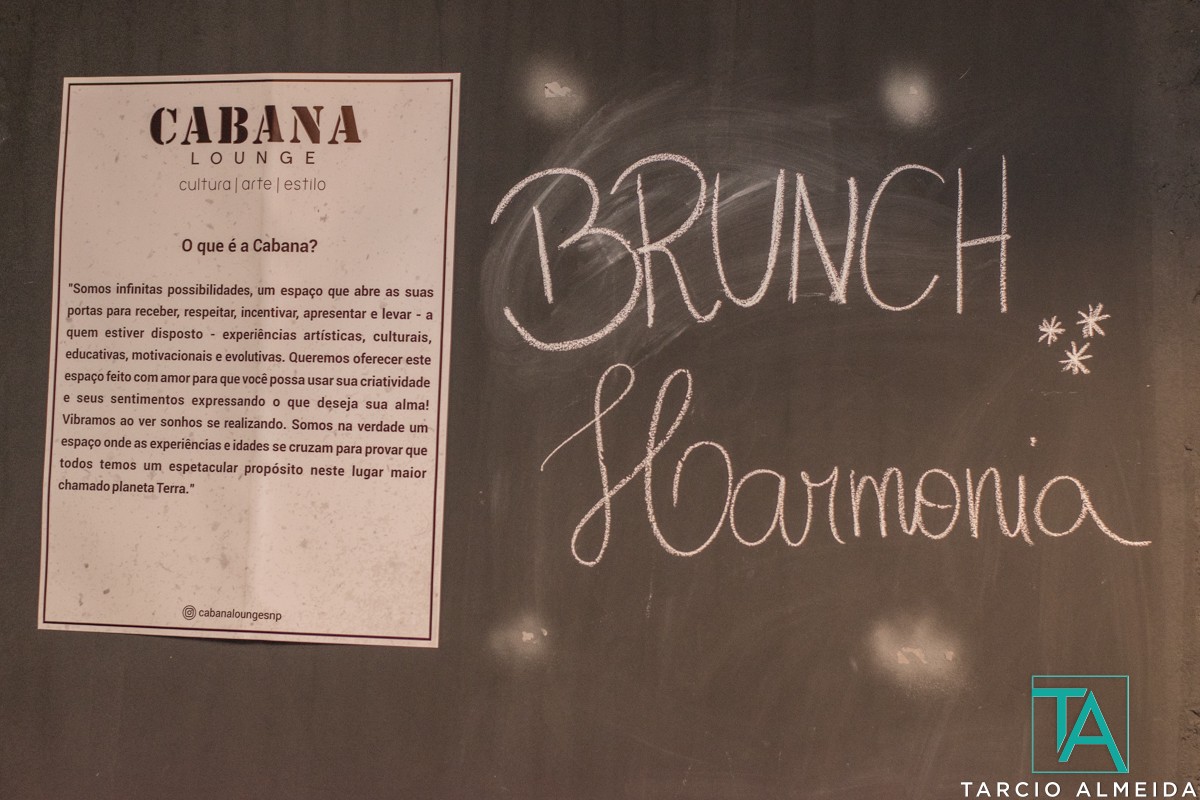 CABANA
LOUNGE
cultura | arte | estilo
O que é a Cabana?
"Somos infinitas possibilidades, um espaço que abre as suas
portas para receber, respeitar, incentivar, apresentar e levar - a
quem estiver disposto - experiências artísticas, culturais,
educativas, motivacionais e evolutivas. Queremos oferecer este
espaço feito com amor para que você possa usar sua criatividade
e seus sentimentos expressando o que deseja sua alma!
Vibramos ao ver sonhos se realizando. Somos na verdade um
espaço onde as experiências e idades se cruzam para provar que
todos temos um espetacular propósito neste lugar maior
chamado planeta Terra."
cabanaloungesnp
BRUNCH
Harmonia
TA
TARCIO ALMEIDA